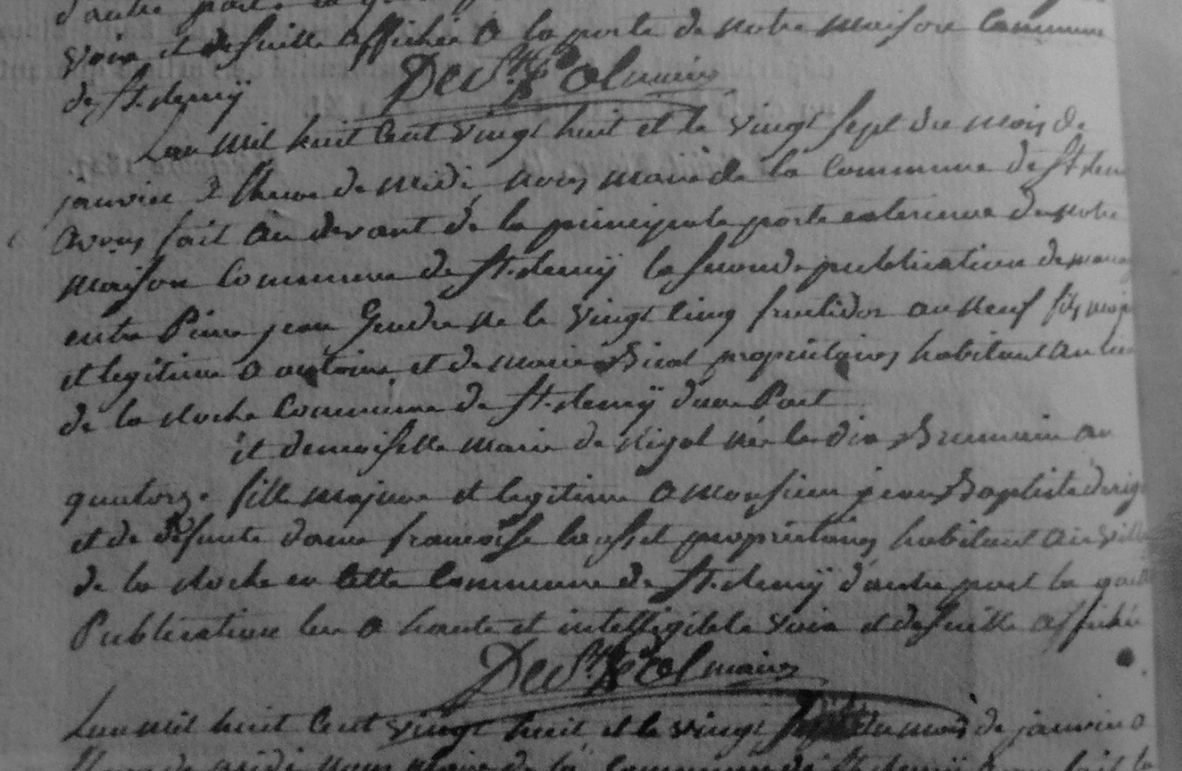 d'autre part
voix et de suitte affichée a la porte de notre maison commune
de St. remÿ
L'an mil huit Cent vingt huit et le vingt sept du mois de
janvier a l'heure de midi nous maire de la Commune de St. rem
avons fait au devant de la principale porte exterieure de notre
maison Commune de St. remÿ la seconde publication de mariag
entre Pierre jean Gendre né le vingt Cinq fructidor an neuf fils maje
et legitime a antoine et de marie proprietaires habitant au
de la roche Commune de St. remÿ d'une Part
et demoiselle marie de rigal née le dix Brumaire an
quatorze fille majeure et legitime a monsieur jean Baptiste derig
et de defunte dame françoise proprietaires habitant au vill
de la roche en Cette Commune de St. remÿ d'autre part la
Publication lue a haute et intelligible voix et de suitte affichée
maire
L'an mil huit Cent vingt huit et le vingt du mois de janvier a
l'heure de midi nous maire de la Commune de St. remÿ avons fait